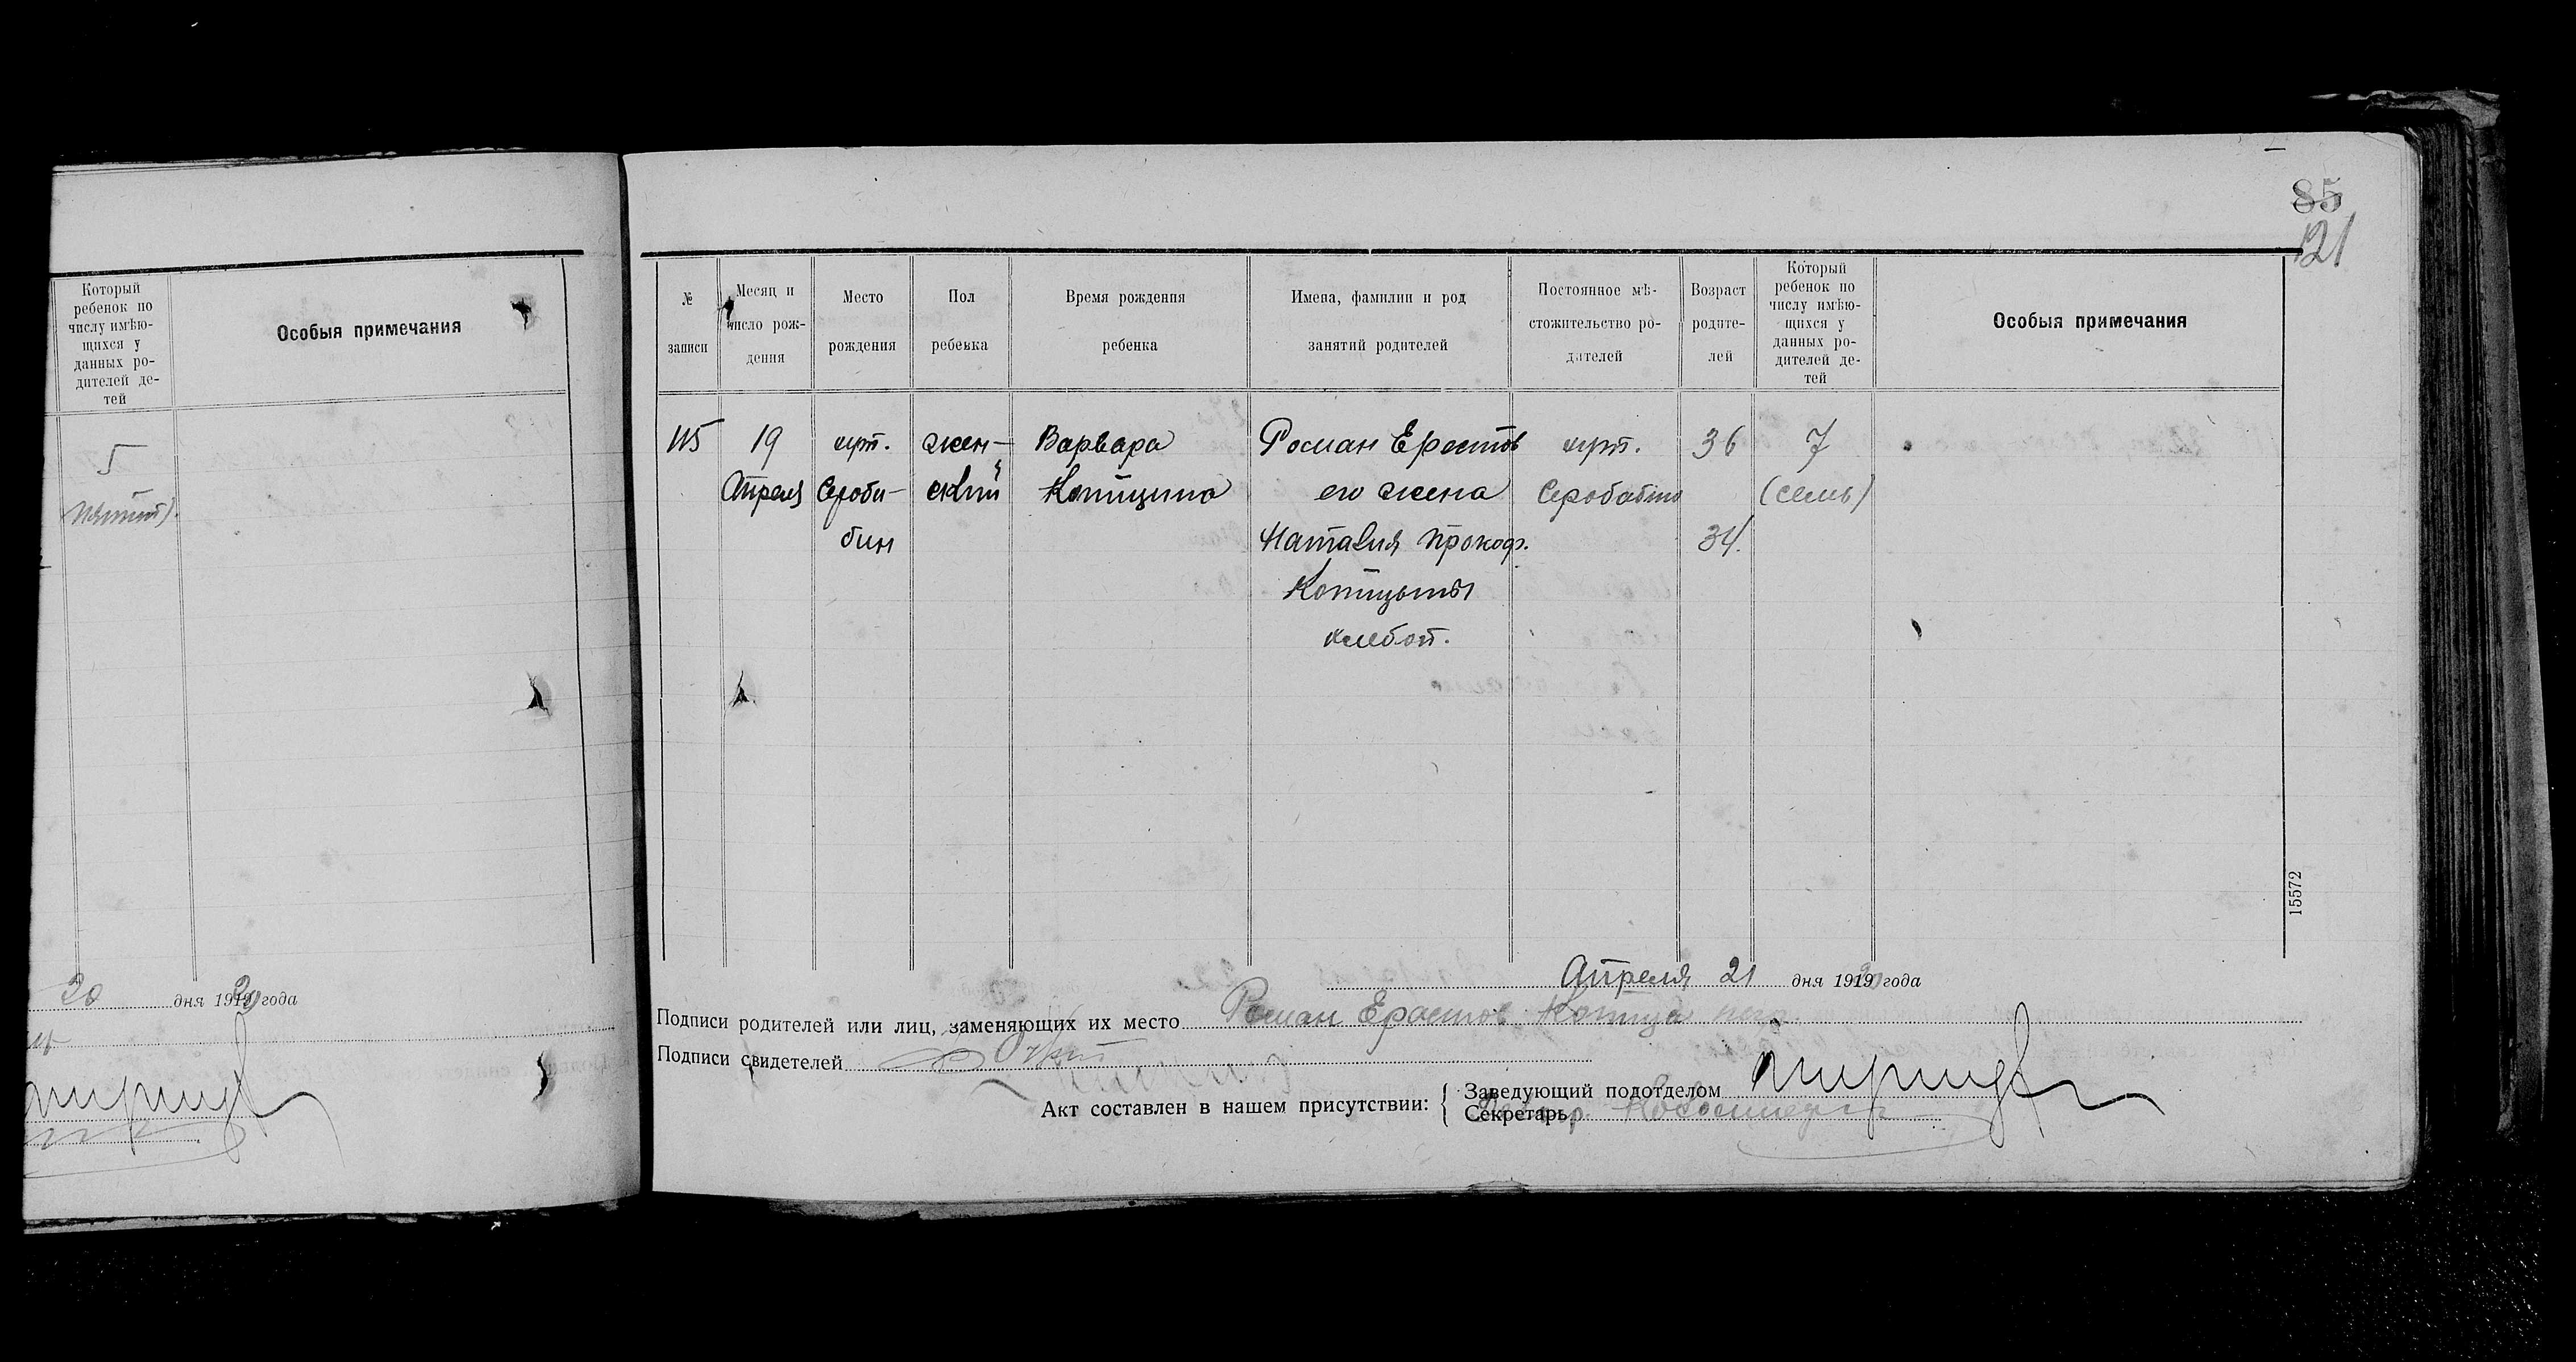 85
121
Который
ребенок по
числу имѣю-
щихся у
данных ро-
дителей де-
тей
Особыя примечания
5
20 дня 1919 20 года
№
записи
Месяц и
число рож-
дения
Место
рождения
Пол
ребенка
Время рождения
ребенка
Имена, фамилии и род
занятий родителей
Постоянное мѣ-
стожительство ро-
дителей
Возраст
родите-
лей
Который
ребенок по
числу имѣю-
щихся у
данных ро-
дителей де-
тей
Особыя примечания
115
19
Апреля
хут.
Сероби-
бин
жен-
ский
Варвара
Копицина
Роман Ерастов
его жена
Наталия Прокоф.
Копицыны
хлебоп.
хут.
36
34.
7
(семь)
15572
Апреля 21 дня 1919 20 года
Подписи родителей или лиц, заменяющих их место Роман Ерастов
Подписи свидетелей
Акт составлен в нашем присутствии:
Заведующий подотделом
Секретарь